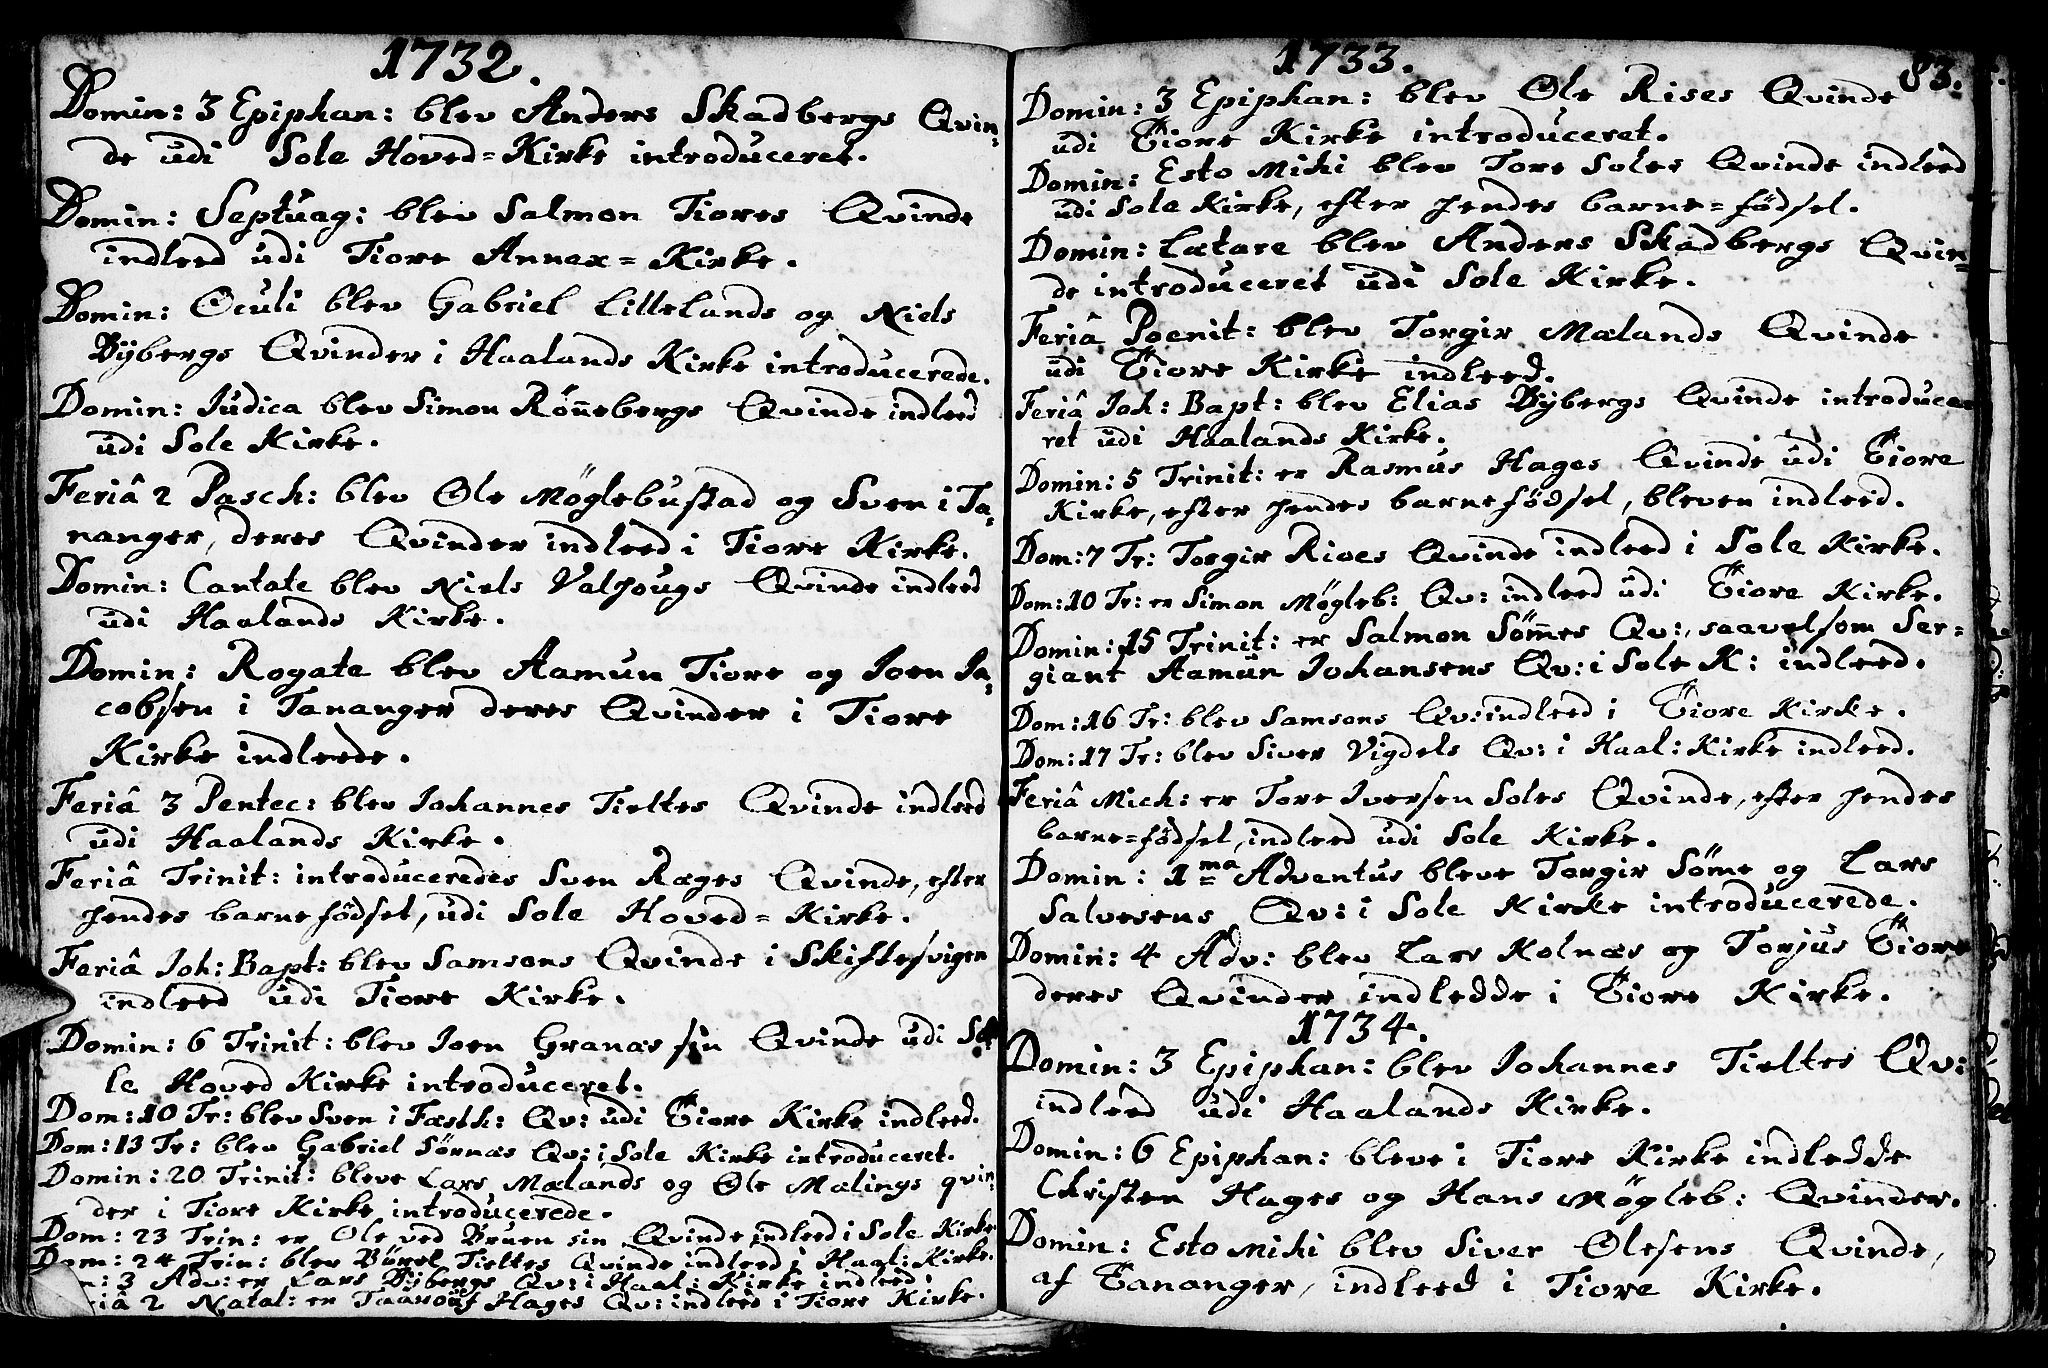 1732.
Domin: 3 Epiphan: blev Anders Skadbergs Qvin-
de udi Sole Hoved-Kirke introduceret.
Domin: Septuag: blev Salmon Tiores Qvinde
indleed udi Tiore Annex-Kirke.
Domin: Oculi blev Gabriel Lillelands og Niels
Bybergs Qvinder i Haalands Kirke introducerede.
Domin: Judica blev Simon Rönnebergs Qvinde indleed
udi Sole Kirke.
Feriâ 2 Pasch: blev Ole Möglebustad og Sven i Ta-
nanger, deres Qvinder indleed i Tiore Kirke.
Domin: Cantate blev Niels Valhougs Qvinde indleed
udi Haalands Kirke.
Domin: Rogate blev Aamun Tiore og Joen Ja-
cobsen i Tananger deres Qvinder i Tiore
Kirke indleede.
Feriâ 3 Pentec: blev Johannes Tieltes Qvinde indleed
udi Haalands Kirke.
Feriâ Trinit: introduceredes Sven Ræges Qvinde, efter
hendes barnefödsel, udi Sole Hoved-Kirke.
Feriâ Joh: Bapt: blev Samsons Qvinde i Skiftesvigen
indleed udi Tiore Kirke.
Domin: 6 Trinit: blev Joen Granæs sin Qvinde udi So-
le Hoved Kirke introduceret.
Dom: 10 Tr: blev Sven i Fæsth: Qv: udi Tiore Kirke indleed.
Dom: 13 Tr: blev Gabriel Sörnæs Qv: i Sole Kirke introduceret.
Domin: 20 Trinit: bleve Lars Mælands og Ole Malings qvin-
der i Tiore Kirke introducerede.
Dom: 23 Trin: er Ole ved Bruen sin Qvinde indleed i Sole Kirke.
Dom: 24 Trin: blev Börel Tieltes Qvinde indleed i Haal: Kirke.
3 Adv: er Lars Bybergs Qv: i Haal: Kirke indleed.
2 Natal: er Hages Qv: indleed i Tiore Kirke.
1733.
83.
Domin: 3 Epiphan: blev Ole Rises Qvinde
udi Tiore Kirke introduceret.
Domin: Esto Mihi blev Tore Soles Qvinde indleed
udi Sole Kirke, efter hendes barne-födsel.
Domin: Lætare blev Anders Skadbergs Qvin-
de introduceret udi Sole Kirke.
Feriâ Poenit: blev Torgir Mælands Qvinde
udi Tiore Kirke indleed.
Feriâ Joh: Bapt: blev Elias Bybergs Qvinde introduce-
ret udi Haalands Kirke.
Domin: 5 Trinit: er Rasmus Hages Qvinde udi Tiore
Kirke, efter hendes barnefödsel, bleven indleed.
Dom: 7 Tr: Torgir Rives Qvinde indleed i Sole Kirke.
Dom: 10 Tr: er Simon Mögleb: Qv: indleed udi Tiore Kirke.
Domin: 15 Trinit: er Salmon Sömmes Qv:, saavelsom Ser-
giant Aamun Johansens Qv: i Sole K: indleed.
Dom: 16 Tr: blev Samsons Qv: indleed i Tiore Kirke.
Dom: 17 Tr: blev Siver Vigdels Qv: i Haal: Kirke indleed.
Feriâ Mich: er Tore Iversen Soles Qvinde, efter hendes
barne-födsel, indleed udi Sole Kirke.
Domin: 1ma Adventus bleve Torgir Söme og Lars
Salvesens Qv: i Sole Kirke introducerede.
Domin: 4 Adv: blev Lars Kolnæs og Torjus Tiore
deres Qvinder indledde i Tiore Kirke.
1734.
Domin: 3 Epiphan: blev Johannes Tieltes Qv:
indleed udi Haalands Kirke.
Domin: 6 Epiphan: bleve i Tiore Kirke indledde
Christen Hages og Hans Mögleb: Qvinder.
Domin: Esto Mihi blev Siver Olesens Qvinde,
af Tananger, indleed i Tiore Kirke.